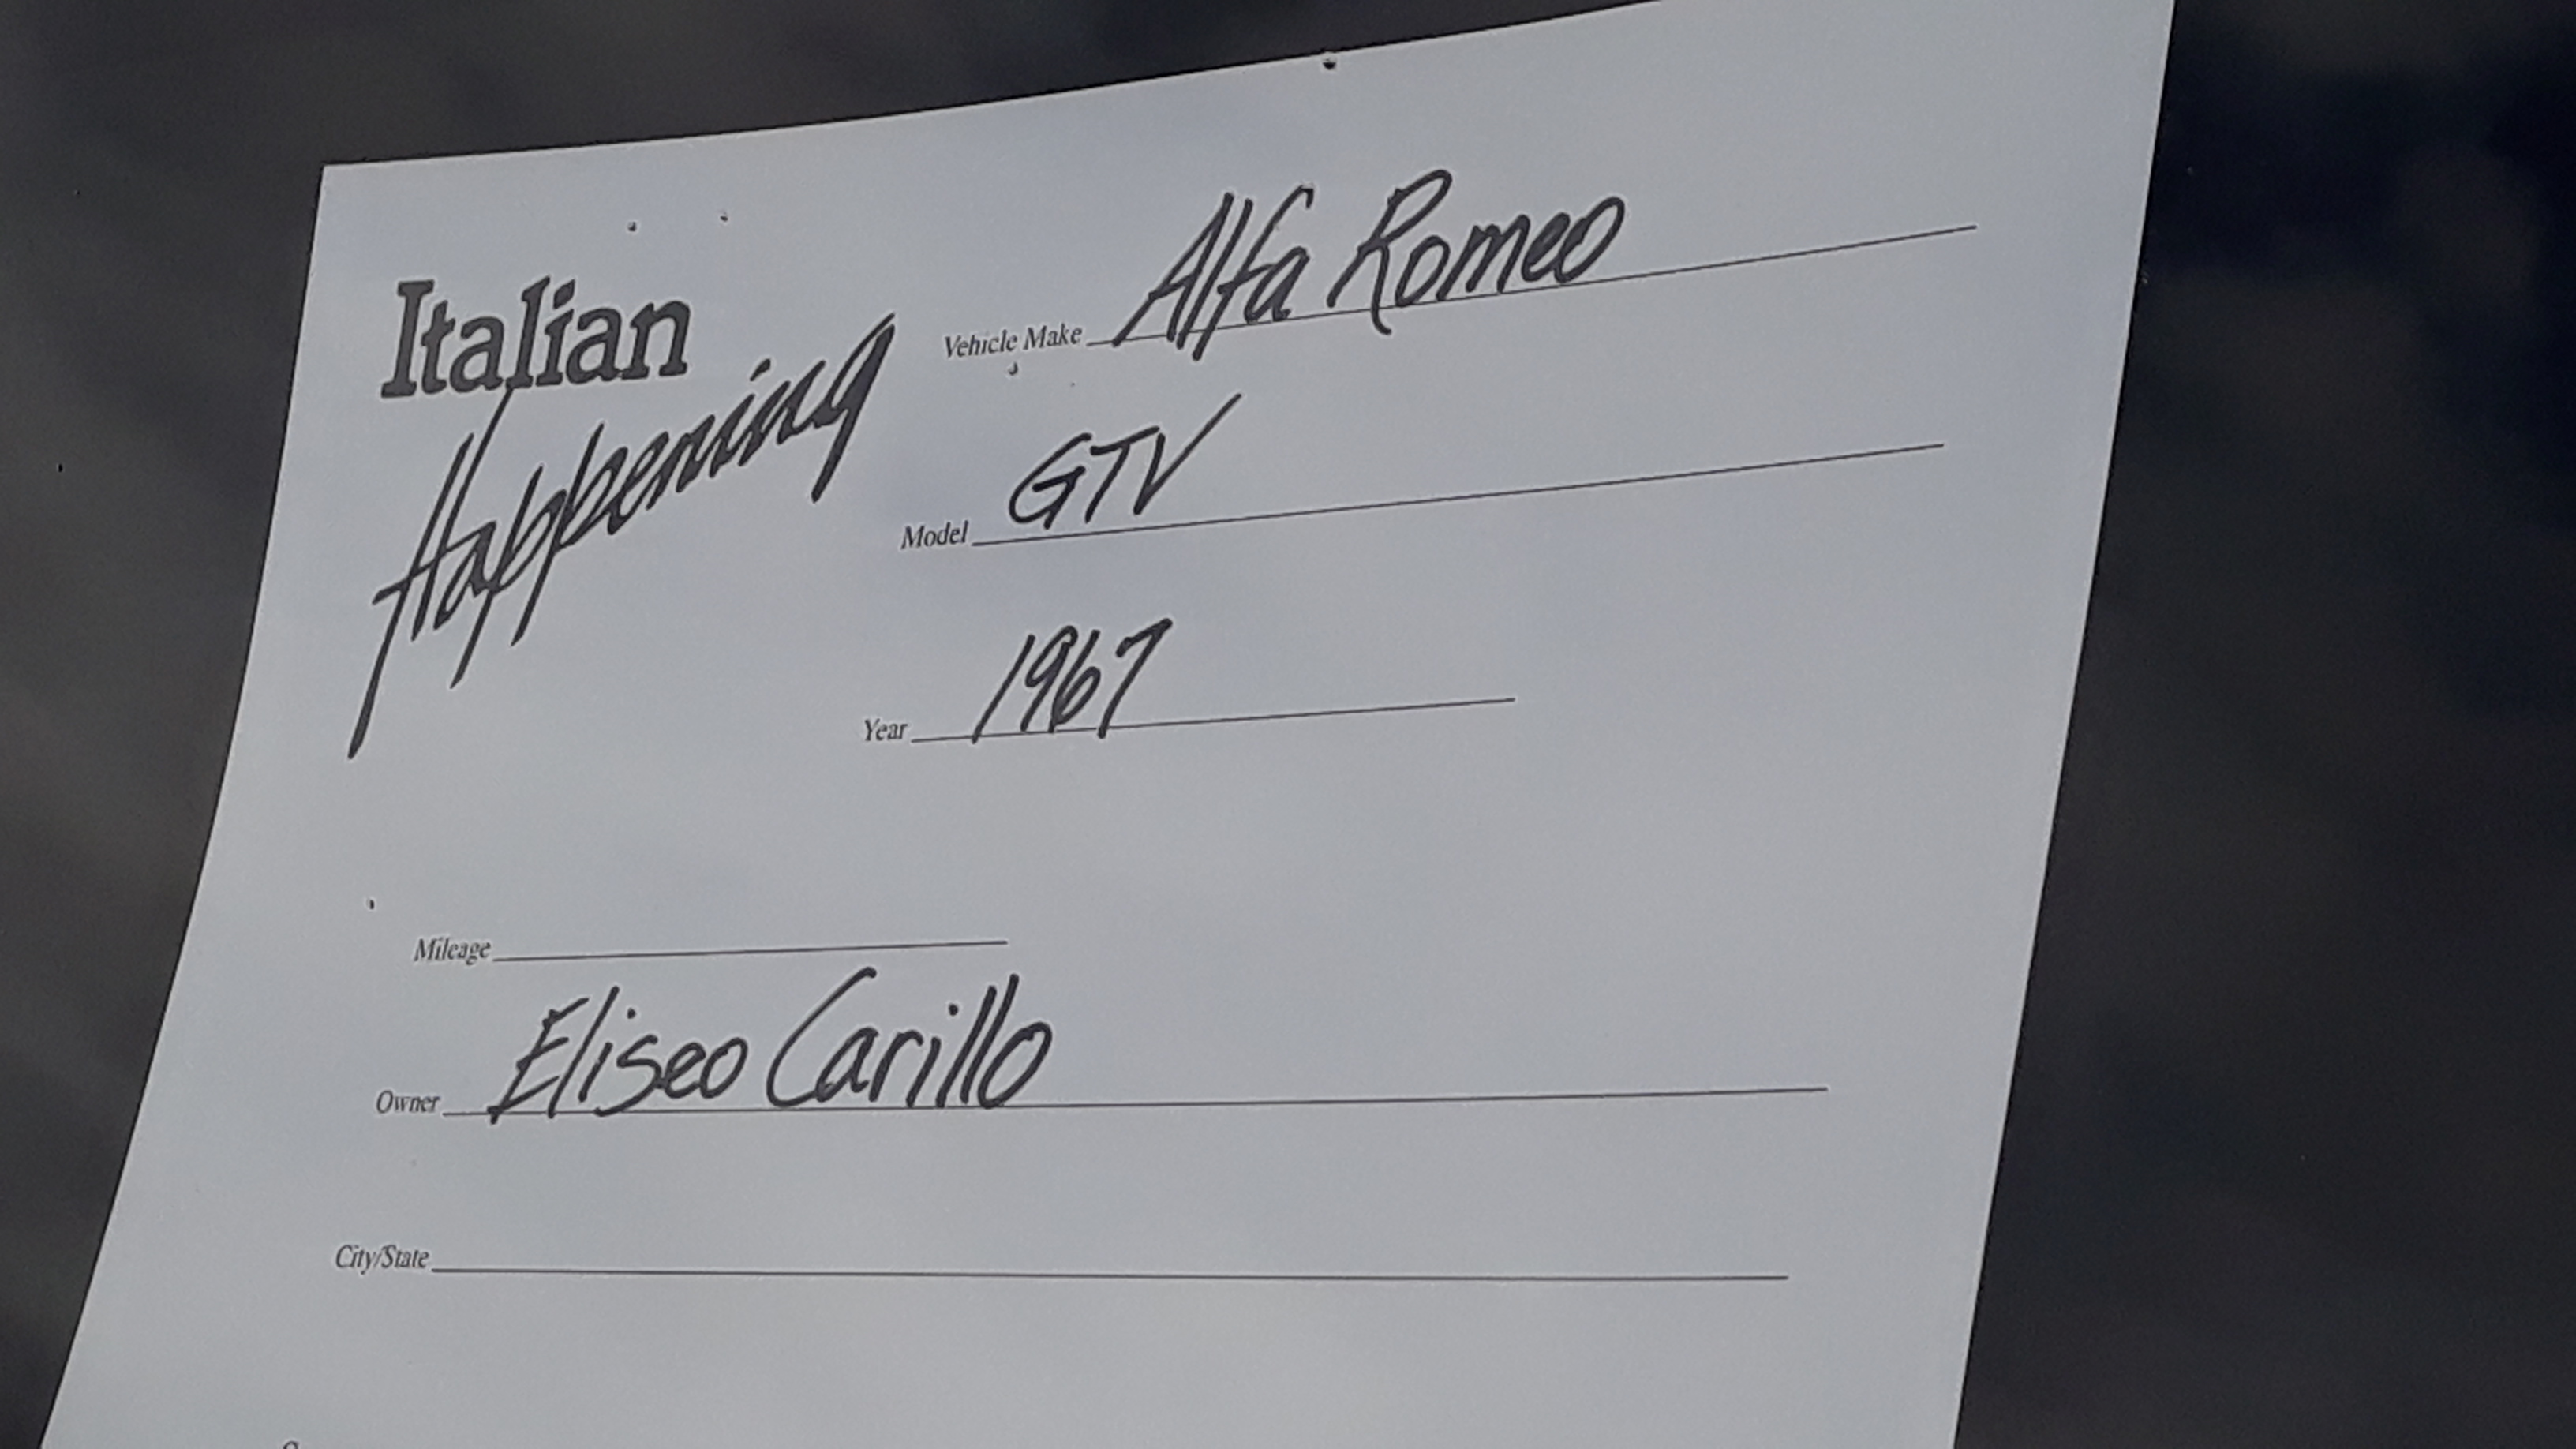 Italian
Happening
Vehicle Make Alfa Romeo
Model GTV
Year 1967
Mileage
Owner Eliseo Carillo
City/State